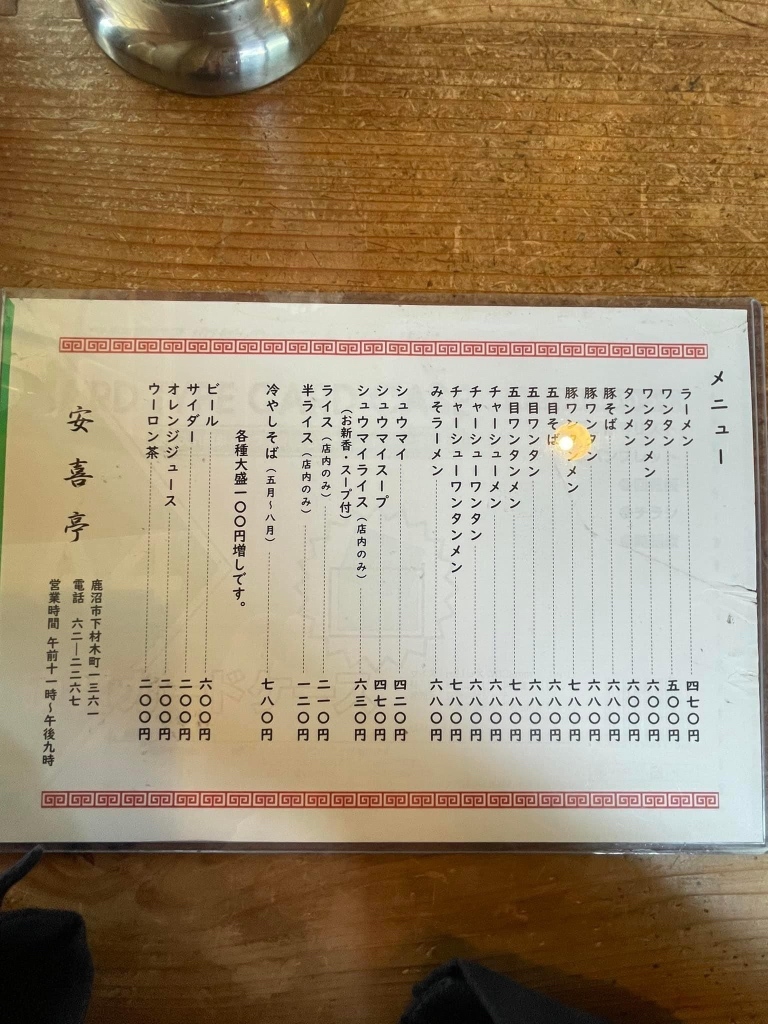 メニュー
ラーメン 四七〇円
ワンタン 五〇〇円
ワンタンメン 六〇〇円
タンメン 六〇〇円
豚そば 六八〇円
豚ワンタン 六八〇円
豚ワンタンメン 七八〇円
五目そば 六八〇円
五目ワンタン 六八〇円
五目ワンタンメン 七八〇円
チャーシューメン 六八〇円
チャーシューワンタン 六八〇円
チャーシューワンタンメン 七八〇円
みそラーメン 六八〇円
シュウマイ 四二〇円
シュウマイスープ 四七〇円
シュウマイライス（店内のみ） 六三〇円
（お新香・スープ付）
ライス（店内のみ） 二一〇円
半ライス（店内のみ） 一二〇円
冷やしそば（五月～八月） 七八〇円
各種大盛一〇〇円増しです。
ビール 六〇〇円
サイダー 二〇〇円
オレンジジュース 二〇〇円
ウーロン茶 二〇〇円
安喜亭
鹿沼市下材木町一三六一
電話 六二―二二六七
営業時間 午前十一時～午後九時